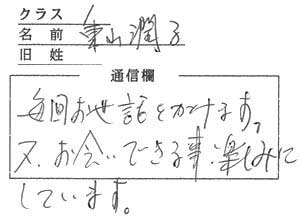 クラス
名前 東山潤子
旧姓
通信欄
毎回お世話をかけます。
又、お会いできる事楽しみに
しています。